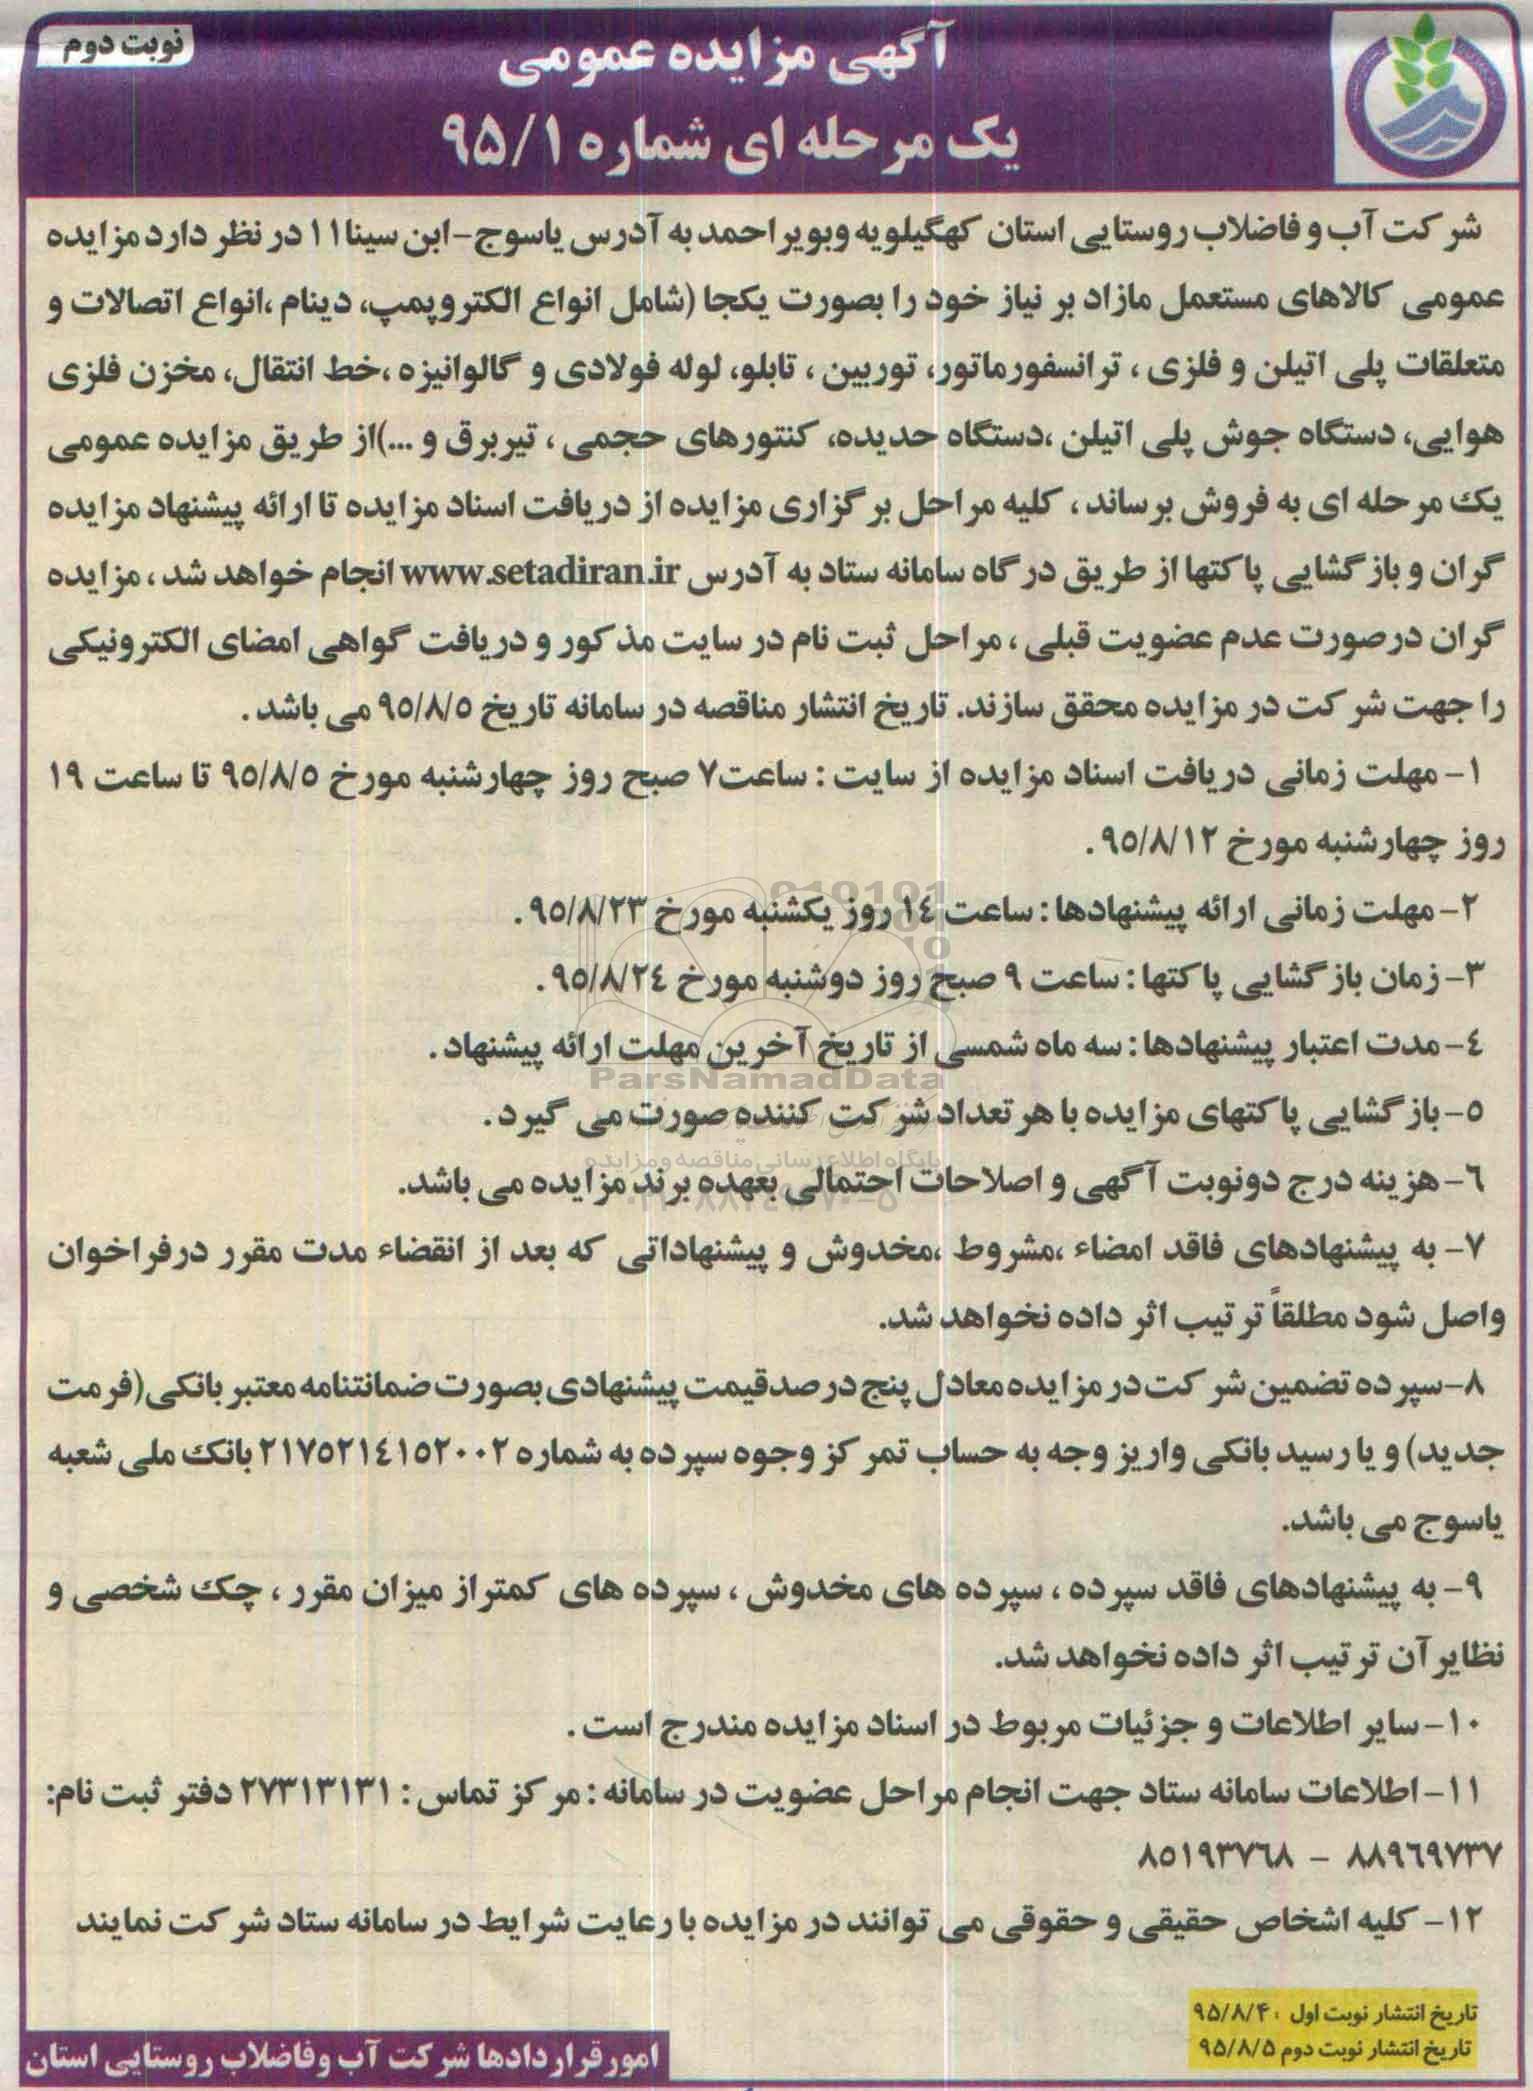 نوبت دوم
آگهی مزایده عمومی
یک مرحله ای شماره ۹۵/۱
شرکت آب و فاضلاب روستایی استان کهگیلویه وبویراحمد به آدرس یاسوج-ابن سینا۱۱ در نظر دارد مزایده
عمومی کالاهای مستعمل مازاد بر نیاز خود را بصورت یکجا (شامل انواع الکتروپمپ، دینام ،انواع اتصالات و
متعلقات پلی اتیلن و فلزی ، ترانسفورماتور، توربین ، تابلو، لوله فولادی و گالوانیزه ،خط انتقال، مخزن فلزی
هوایی، دستگاه جوش پلی اتیلن ،دستگاه حدیده، کنتورهای حجمی ، تیربرق و ...)از طریق مزایده عمومی
یک مرحله ای به فروش برساند ، کلیه مراحل برگزاری مزایده از دریافت اسناد مزایده تا ارائه پیشنهاد مزایده
گران و بازگشایی پاکتها از طریق درگاه سامانه ستاد به آدرس www.setadiran.ir انجام خواهد شد ، مزایده
گران درصورت عدم عضویت قبلی ، مراحل ثبت نام در سایت مذکور و دریافت گواهی امضای الکترونیکی
را جهت شرکت در مزایده محقق سازند. تاریخ انتشار مناقصه در سامانه تاریخ ۹۵/۸/۵ می باشد .
۱- مهلت زمانی دریافت اسناد مزایده از سایت : ساعت۷ صبح روز چهارشنبه مورخ ۹۵/۸/۵ تا ساعت ۱۹
روز چهارشنبه مورخ ۹۵/۸/۱۲ .
۲- مهلت زمانی ارائه پیشنهادها : ساعت ۱۴ روز یکشنبه مورخ ۹۵/۸/۲۳ .
۳- زمان بازگشایی پاکتها : ساعت ۹ صبح روز دوشنبه مورخ ۹۵/۸/۲۴ .
۴- مدت اعتبار پیشنهادها : سه ماه شمسی از تاریخ آخرین مهلت ارائه پیشنهاد .
ParsNamadData
۵- بازگشایی پاکتهای مزایده با هر تعداد شرکت کننده صورت می گیرد .
پایگاه اطلاع رسانی مناقصه و مزایده
۶- هزینه درج دونوبت آگهی و اصلاحات احتمالی بعهده برنده مزایده می باشد.
۷- به پیشنهادهای فاقد امضاء ،مشروط ،مخدوش و پیشنهاداتی که بعد از انقضاء مدت مقرر درفراخوان
واصل شود مطلقاً ترتیب اثر داده نخواهد شد.
۸-سپرده تضمین شرکت در مزایده معادل پنج درصدقیمت پیشنهادی بصورت ضمانتنامه معتبر بانکی(فرمت
جدید) و یا رسید بانکی واریز وجه به حساب تمرکز وجوه سپرده به شماره ۲۱۷۵۲۱۴۱۵۲۰۰۲ بانک ملی شعبه
یاسوج می باشد.
۹- به پیشنهادهای فاقد سپرده ، سپرده های مخدوش ، سپرده های کمتراز میزان مقرر ، چک شخصی و
نظایرآن ترتیب اثر داده نخواهد شد.
۱۰- سایر اطلاعات و جزئیات مربوط در اسناد مزایده مندرج است .
۱۱- اطلاعات سامانه ستاد جهت انجام مراحل عضویت در سامانه : مرکز تماس : ۲۷۳۱۳۱۳۱ دفتر ثبت نام:
۸۸۹۶۹۷۳۷ - ۸۵۱۹۳۷۶۸
۱۲- کلیه اشخاص حقیقی و حقوقی می توانند در مزایده با رعایت شرایط در سامانه ستاد شرکت نمایند
تاریخ انتشار نوبت اول ۹۵/۸/۴۰
تاریخ انتشار نوبت دوم ۹۵/۸/۵
امورقراردادها شرکت آب وفاضلاب روستایی استان